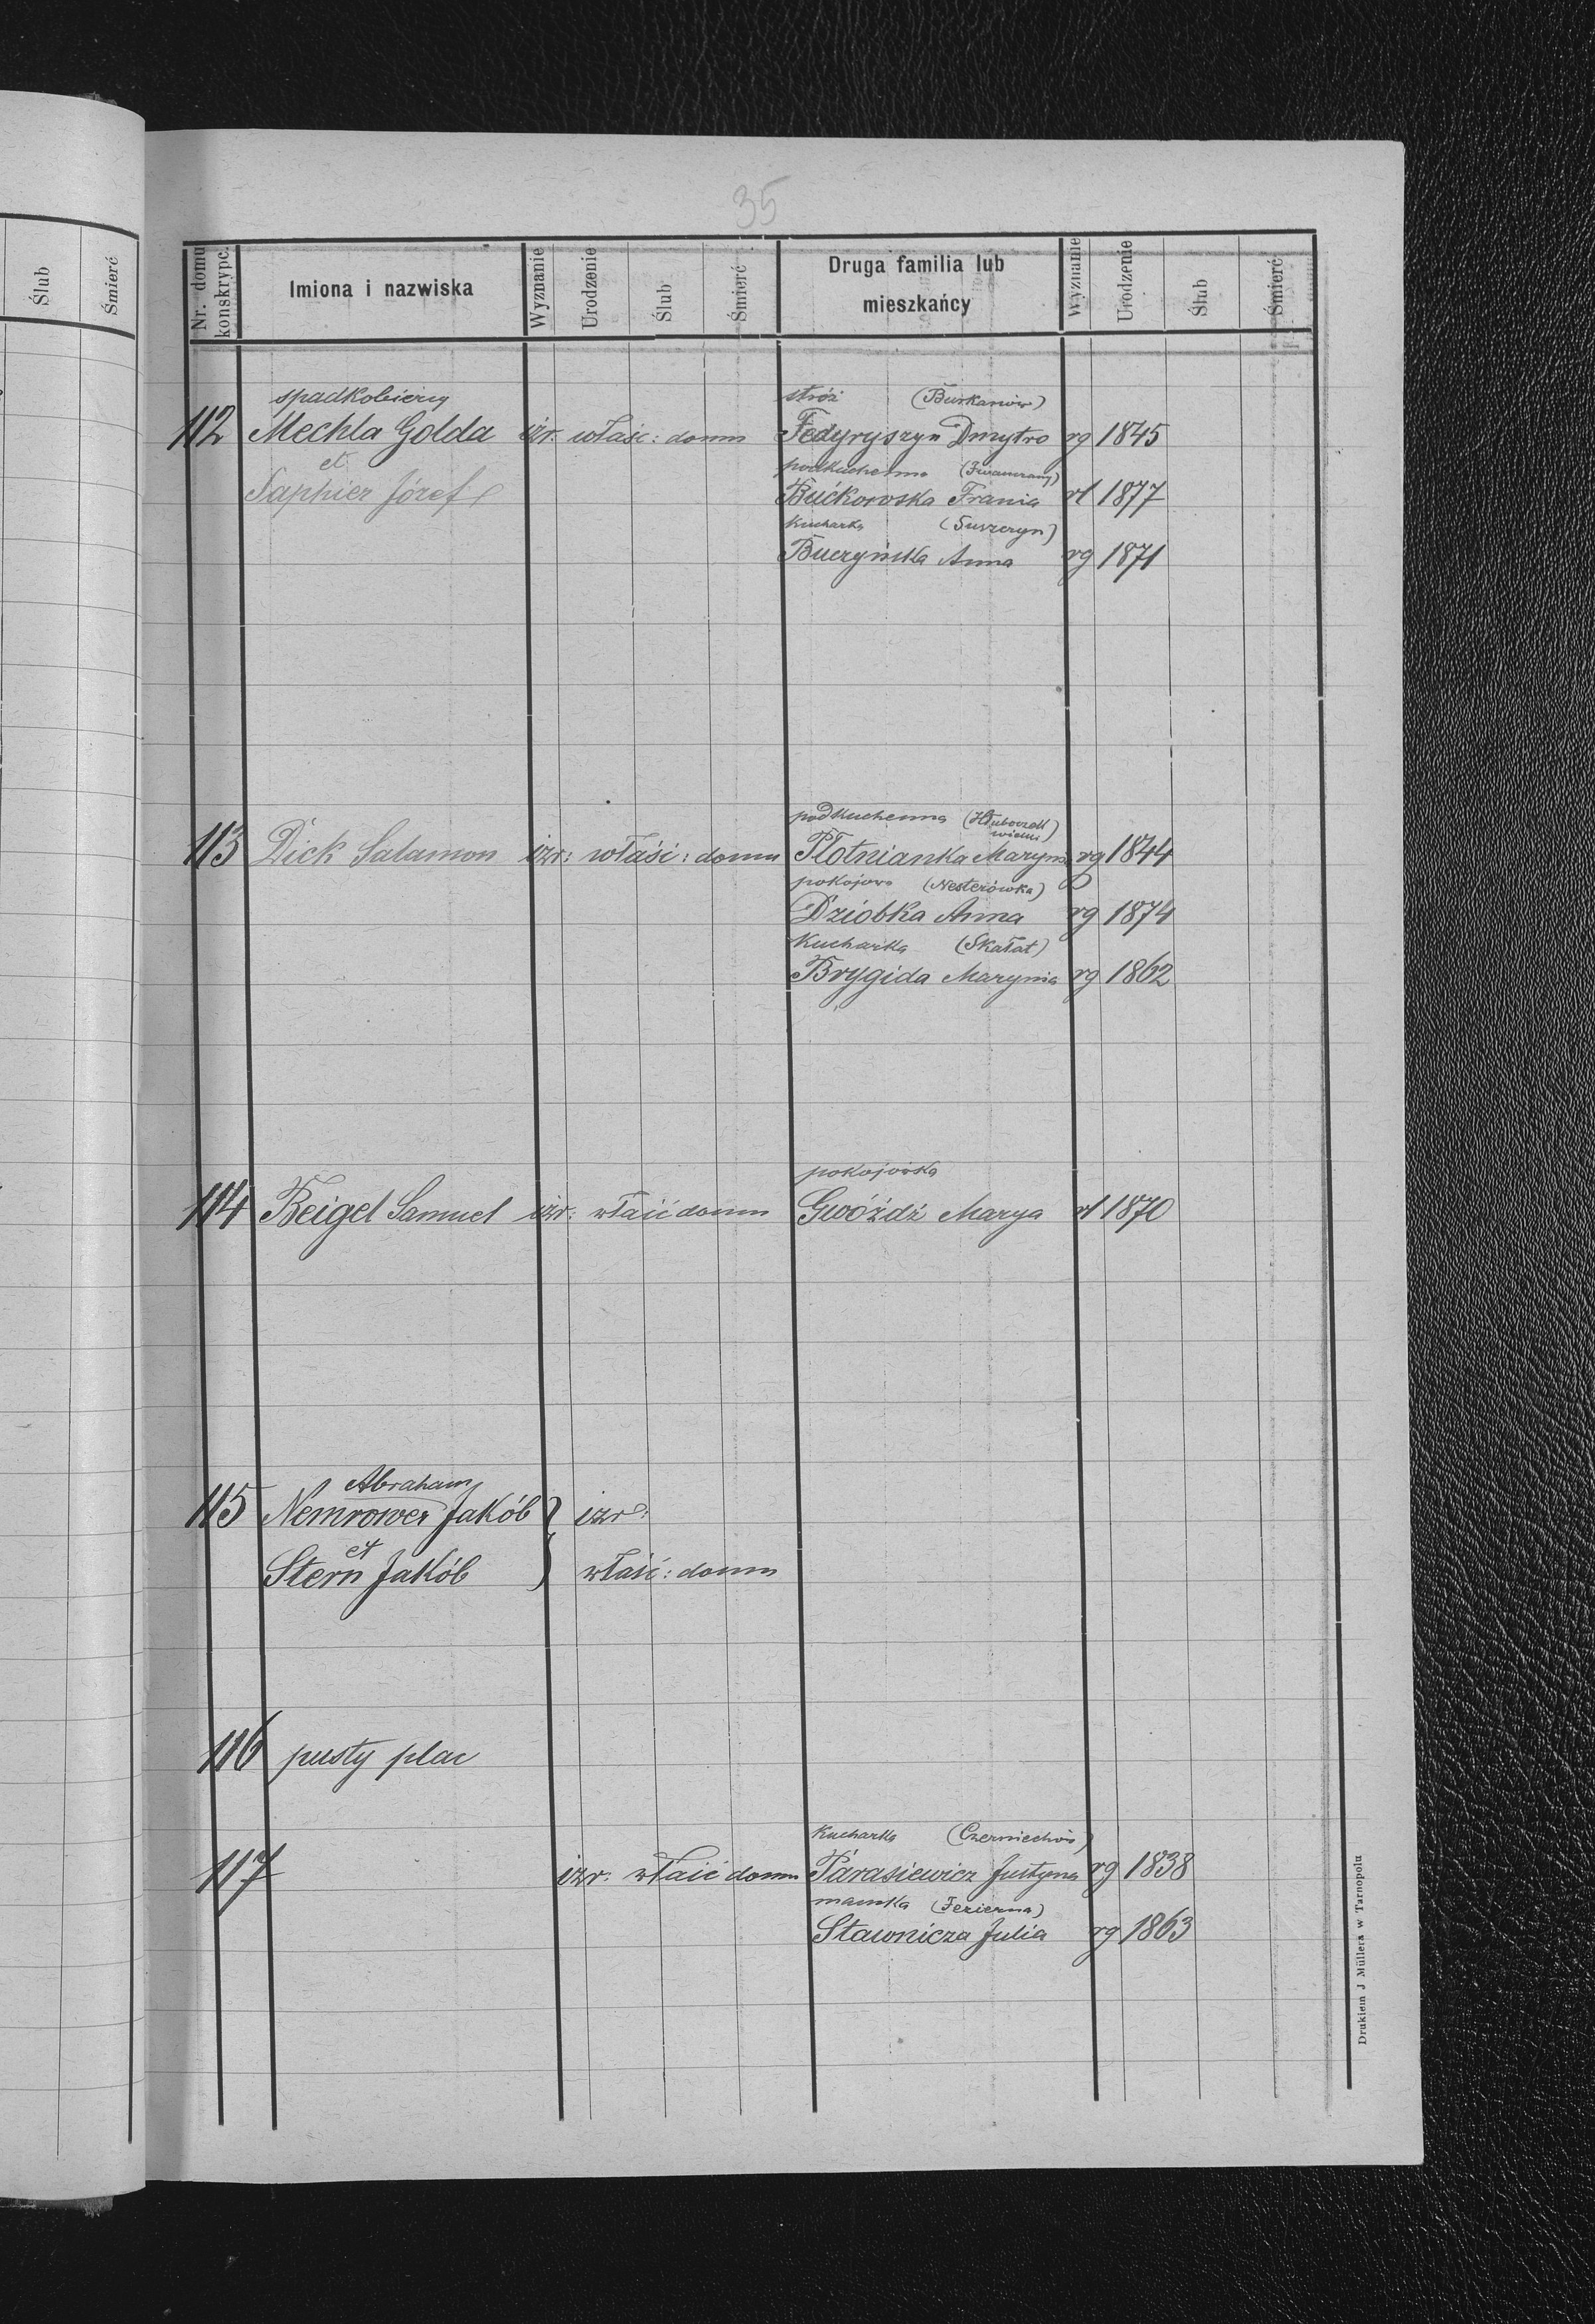 Ślub
Śmierć
35
Nr. domu konskrypc.
Imiona i nazwiska
Wyznanie
Urodzenie
Ślub
Śmierć
Druga familia lub
mieszkańcy
Wyznanie
Urodzenie
Ślub
Śmierć
spadkobiercy
stróż (Burkanów)
112 Mechla Golda izr. właść: domu Fedyryszyn Dmytro rg 1845
et
podkuchenna
Saphier Józef Bućkowska Frania rl 1877
kucharka
Buczyńska Anna rg 1871
podkuchenna (Hłuboczek
wielki)
113 Dick Salamon izr: właść: domu Płotnianka Marynia rg 1844
pokojowa (Nesterówka)
Dziobka Anna rg 1874
Kucharka (Skałat)
Brygida Marynia rg 1862
pokojówka
114 Beigel Samuel izr: właść domu Gwóźdź Marya rl 1870
Abraham
115 Nemrower Jakób } izr:
et
Stern Jakób właść: domu
116 pusty plac
Kucharka (Czerniechów)
117 izr. właść domu Parasiewicz Justyna rg 1838
mamka (Jezierna)
Stawnicza Julia rg 1863
Drukiem J Müllera w Tarnopolu